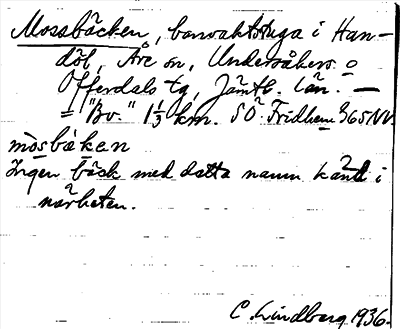 Mossbäcken, banvaktstuga i Han-
döl, Åre sn, Undersåkers o
Offerdals tg, Jämtl. län. —
= "Bv." 1⅓ km. SO Fridhem 365 NV.
mòsbäken
Ingen bäck med detta namn känd i
närheten.
C. Lindberg 1936.